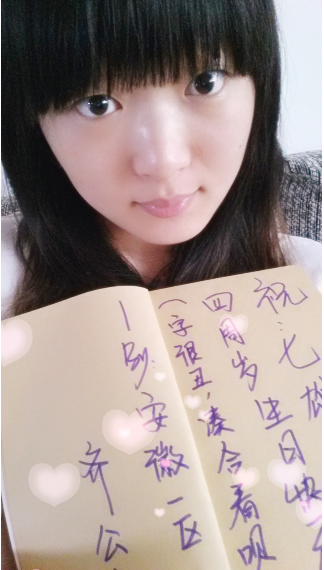 祝:七雄
四周岁生日快
(字很丑,凑合看
安徽一区
齐公